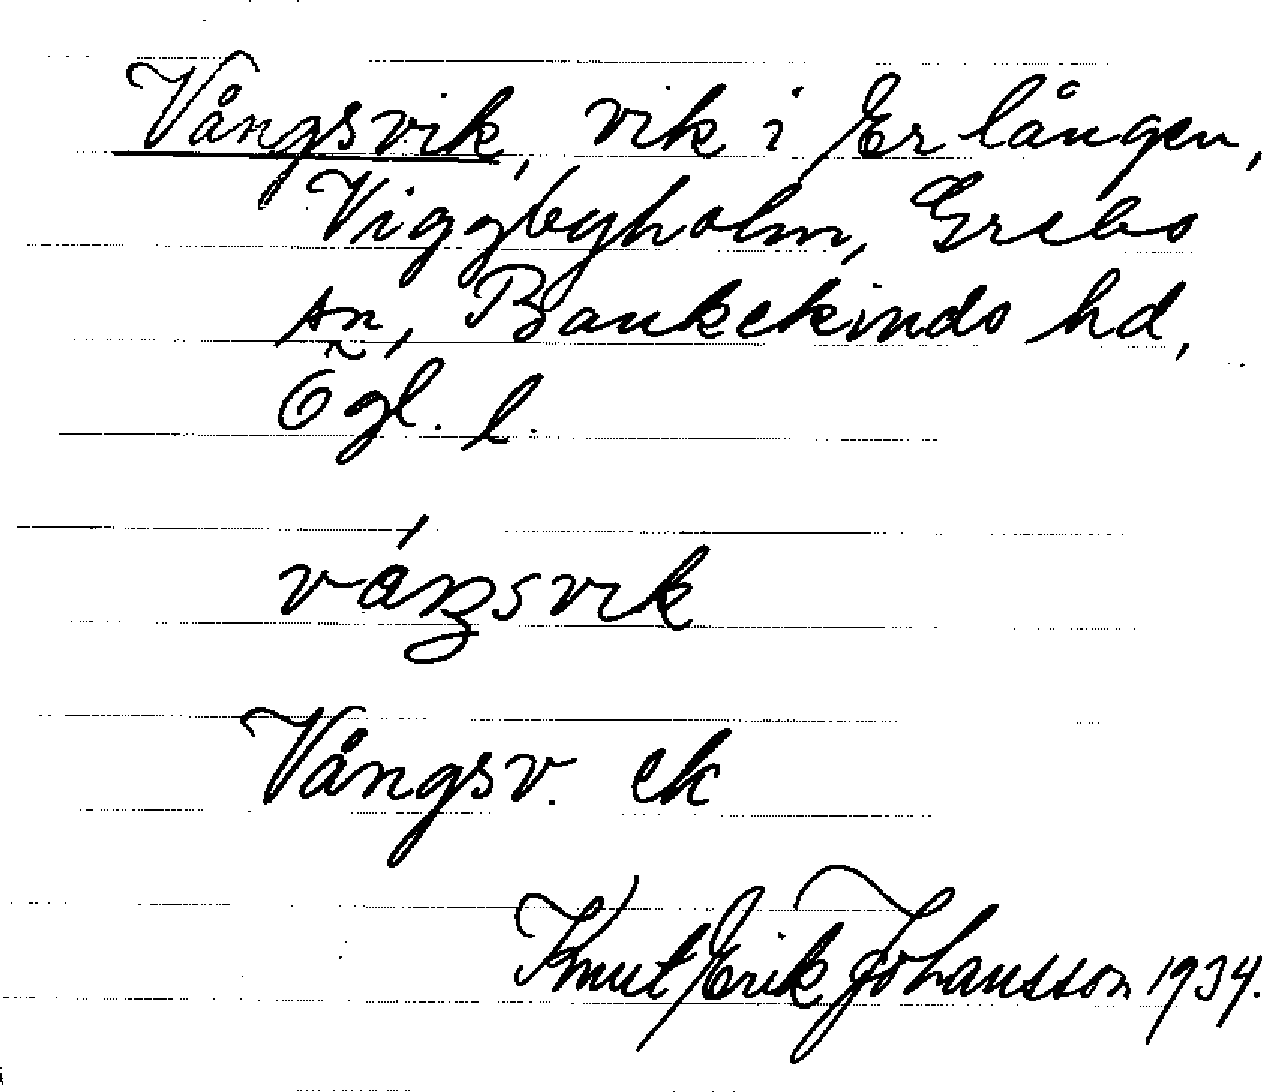 Vångsvik, vik i Erlången,
Viggbyholm, Grebo
sn, Bankekinds hd,
Ögl. l.
våŋsvik
Vångsv. ek
Knut Erik Johansson 1934.